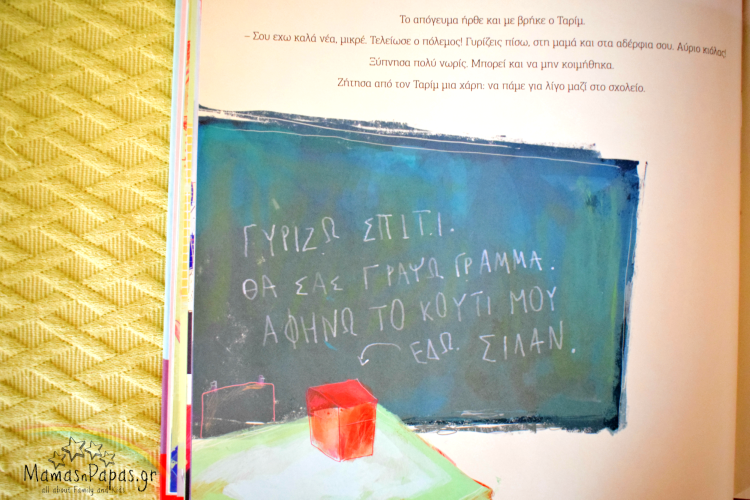 Το απόγευμα ήρθε και με βρήκε ο Ταρίμ.
– Σου εχω καλά νέα, μικρέ. Τελείωσε ο πόλεμος! Γυρίζεις πίσω, στη μαμά και στα αδέρφια σου. Αύριο κιόλας!
Ξύπνησα πολύ νωρίς. Μπορεί και να μην κοιμήθηκα.
Ζήτησα από τον Ταρίμ μια χάρη: να πάμε για λίγο μαζί στο σχολείο.
ΓΥΡΙΖΩ ΣΠΙΤΙ.
ΘΑ ΣΑΣ ΓΡΑΨΩ ΓΡΑΜΜΑ.
ΑΦΗΝΩ ΤΟ ΚΟΥΤΙ ΜΟΥ
ΕΔΩ. ΣΙΛΑΝ.
MamasnPapas.gr
all about Family and Kids